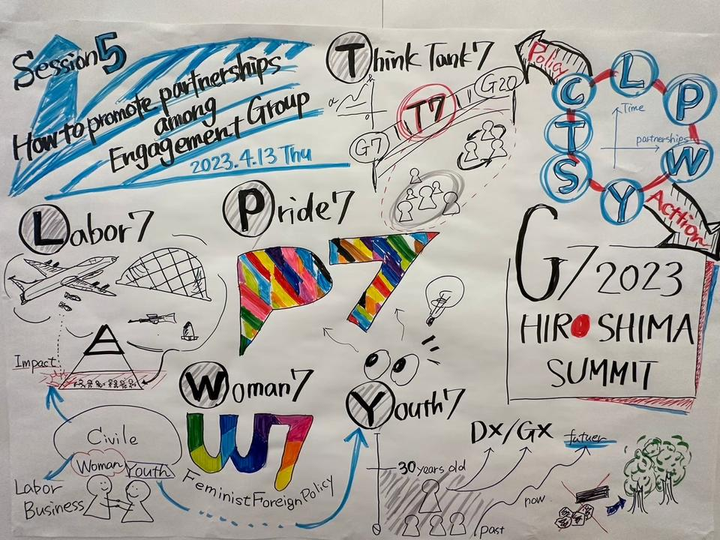 Session 5
How to promote partnerships
among
Engagement Group
2023.4.13 Thu
Think Tank 7
G7
T7
G20
Policy
C
L
P
T
Time
partnerships
W
S
Y
Action
Labor7
Pride7
P7
G7/2023
HIROSHIMA
SUMMIT
Impact
Woman7
W7
Feminist Foreign Policy
Youth7
Civile
Woman
Youth
Labor
Business
DX/GX
30 years old
futuer
now
past
0